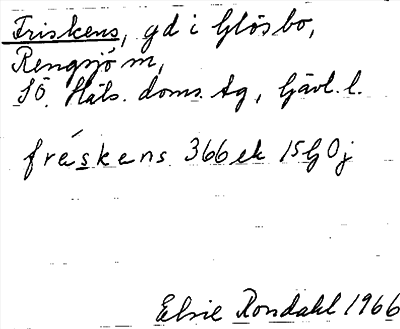 Friskens, gd i Glösbo,
Rengsjö m,
SÖ. Häls. doms. tg, Gävl. l.
fréskens 366 ek 15G0j
Elsie Rondahl 1966